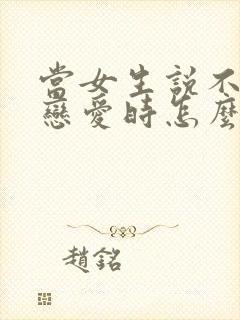 當女生說不
戀愛時怎麼
趙銘